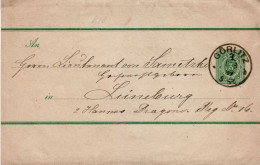 GÖRLITZ
An
Herrn Lieutenant von
Hochwohlgeboren
in Lüneburg
2 Hannov. Dragoner Reg Nr. 16.